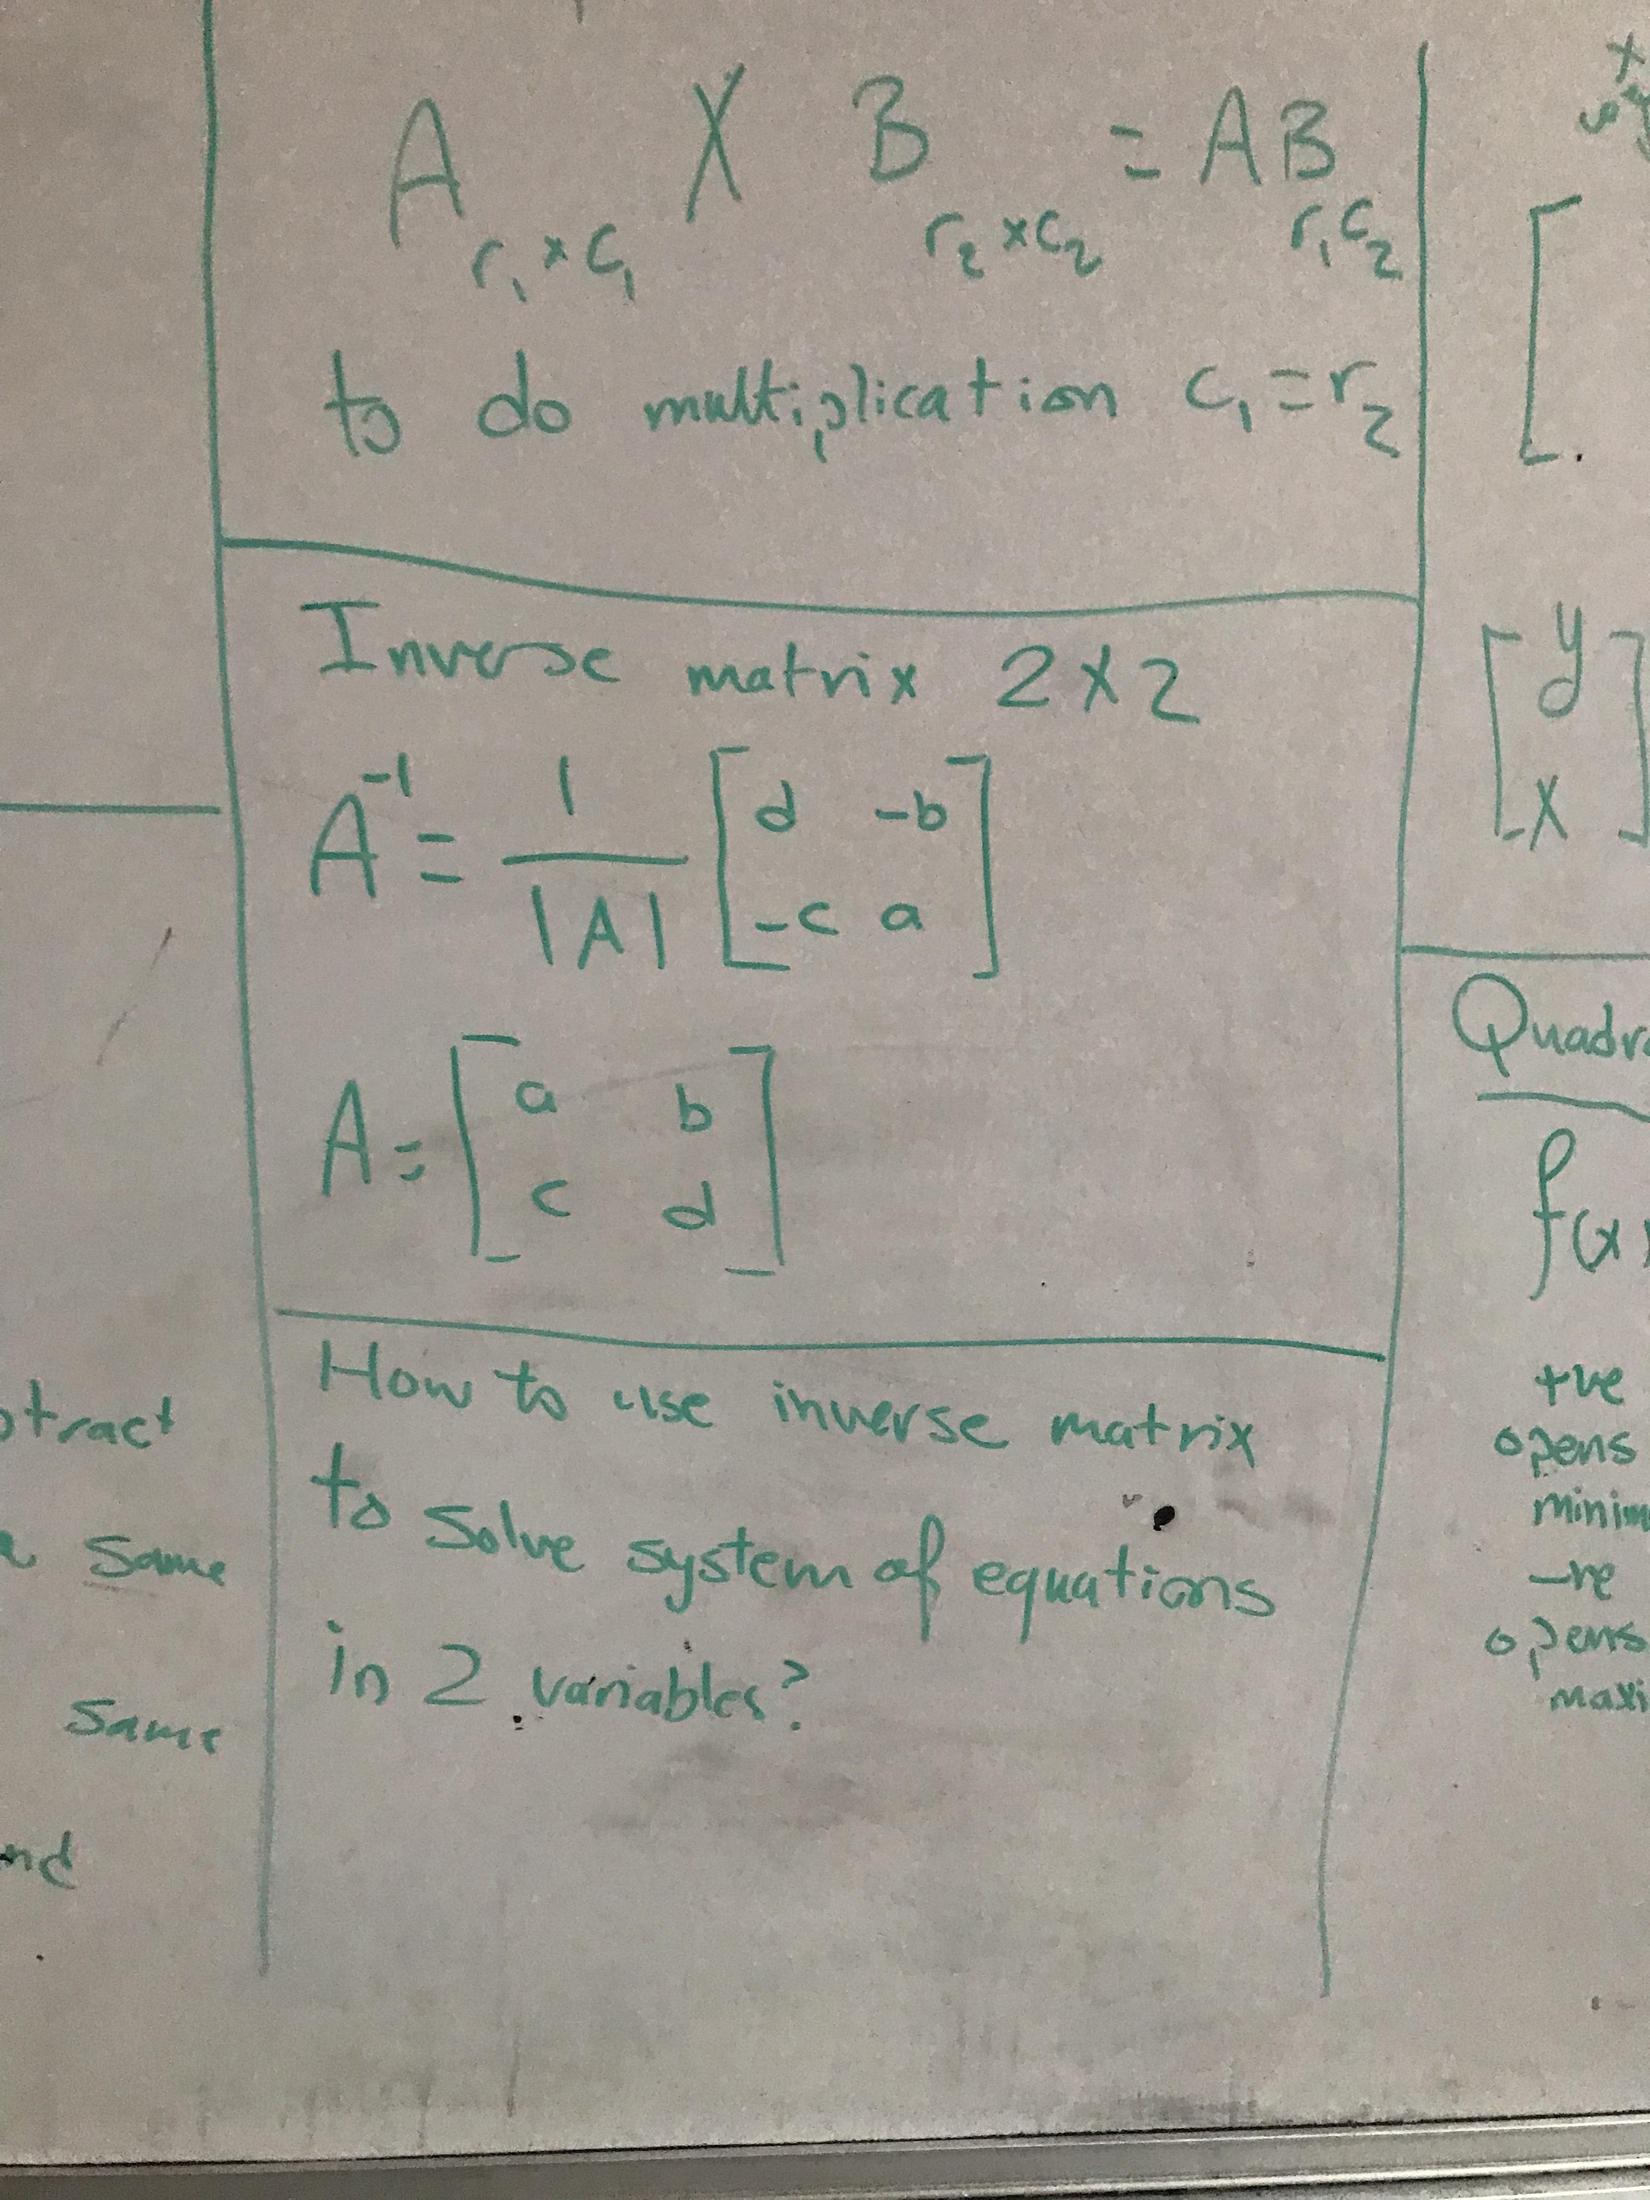 A r₁ × c₁ X B r₂ × c₂ = AB r₁ c₂
to do multiplication c₁ = r₂
Inverse matrix 2 X 2
A⁻¹ = 1 / |A| [ d -b
-c a ]
A = [ a b
c d ]
How to use inverse matrix
to solve system of equations
in 2 variables?
same
same
[
[ y ]
[ x ]
f(x)
+ve
opens
-ve
opens